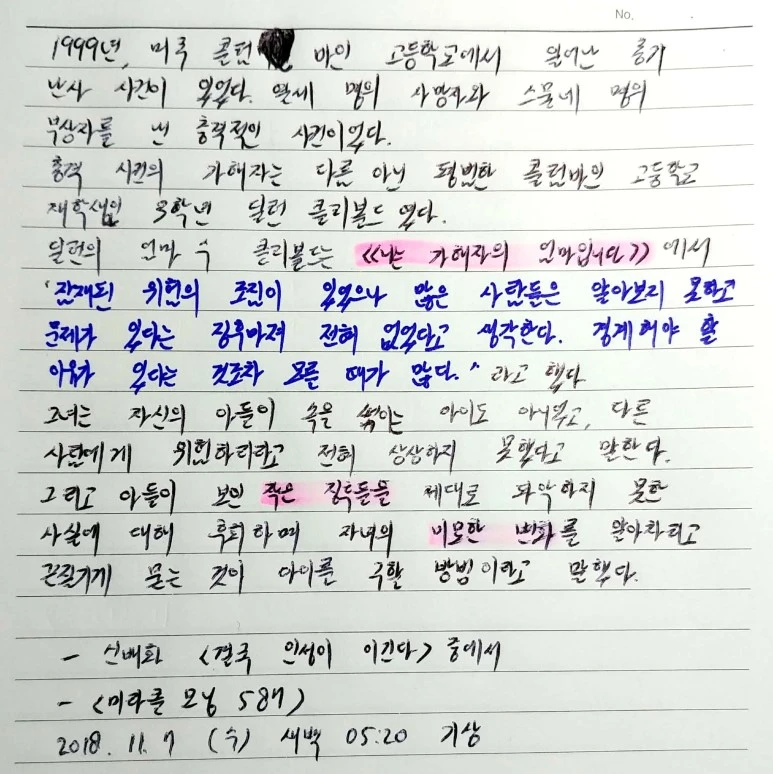 No.
1999년, 미국 콜럼 바인 고등학교에서 일어난 총기
난사 사건이 있었다. 열세 명의 사망자와 스물네 명의
부상자를 낸 충격적인 사건이었다.
충격 사건의 가해자는 다름 아닌 평범한 콜럼바인 고등학교
재학생인 3학년 딜런 클리볼드 였다.
딜런의 엄마 수 클리볼드는 《나는 가해자의 엄마입니다》에서
"잠재된 위험의 조짐이 있었으나 많은 사람들은 알아보지 못하고
문제가 있다는 징후마저 전혀 없었다고 생각한다. 경계해야 할
이유가 있다는 것조차 모를 때가 많다." 라고 했다
그녀는 자신의 아들이 속을 썩이는 아이도 아니었고, 다른
사람에게 위험하리라고 전혀 상상하지 못했다고 말한다.
그리고 아들이 보인 작은 징후들을 제대로 파악하지 못한
사실에 대해 후회하며 자녀의 미묘한 변화를 알아차리고
끈질기게 묻는 것이 아이를 구할 방법이라고 말했다.
- 신배화 <결국 인성이 이긴다> 중에서
- <미라클 모닝 587>
2018. 11. 7 (수) 새벽 05:20 기상